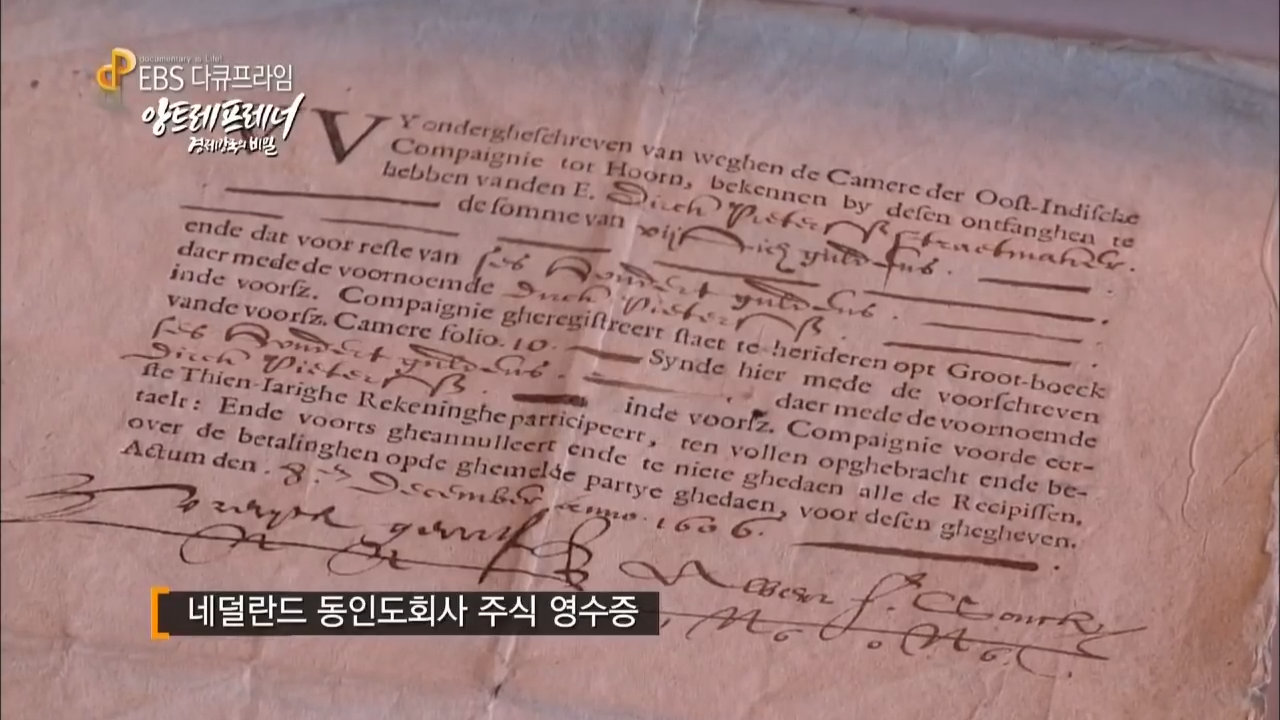 documentary is Life!
EBS 다큐프라임
앙트레프레너
경제강국의 비밀
VVY ondergheſchreven van weghen de Camere der Ooſt-Indiſche
Compaignie tot Hoorn, bekennen by deſen ontfanghen te
hebben vanden E. Dirck Pieterſz Straetmaker.
de ſomme van guldens.
ende dat voor reſte van ſes hondert guldens.
daer mede de voornoemde Dirck Pieterſz
inde voorſz. Compaignie gheregiſtreert ſtaet te herideren opt Groot-boeck
vande voorſz. Camere folio. 10. Synde hier mede de voorſchreven
ſes hondert guldens daer mede de voornoemde
Dirck Pieterſz. inde voorſz. Compaignie voorde eer-
ſte Thien-Iarighe Rekeninghe participeert, ten vollen opghebracht ende be-
taelt: Ende voorts gheannulleert ende te niete ghedaen alle de Recipiſſen,
over de betalinghen opde ghemelde partye ghedaen, voor deſen ghegheven.
Actum den. 8. December anno. 1606.
네덜란드 동인도회사 주식 영수증